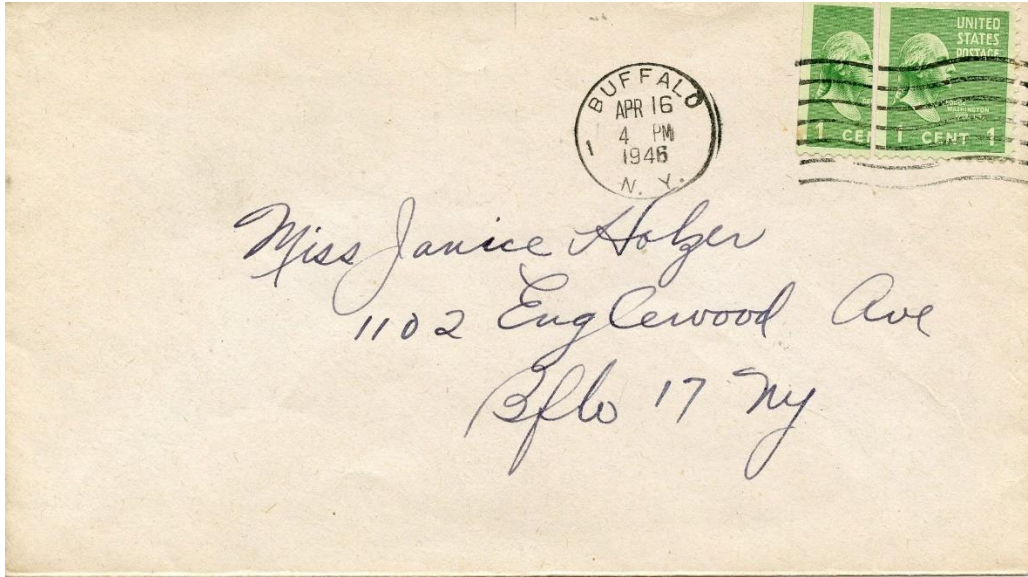 BUFFALO
APR 16
4 PM
1946
N. Y.
1
UNITED
STATES
POSTAGE
GEORGE
WASHINGTON
1 CEN
1 CENT 1
Miss Janice Holzer
1102 Englewood Ave
Bflo 17 Ny